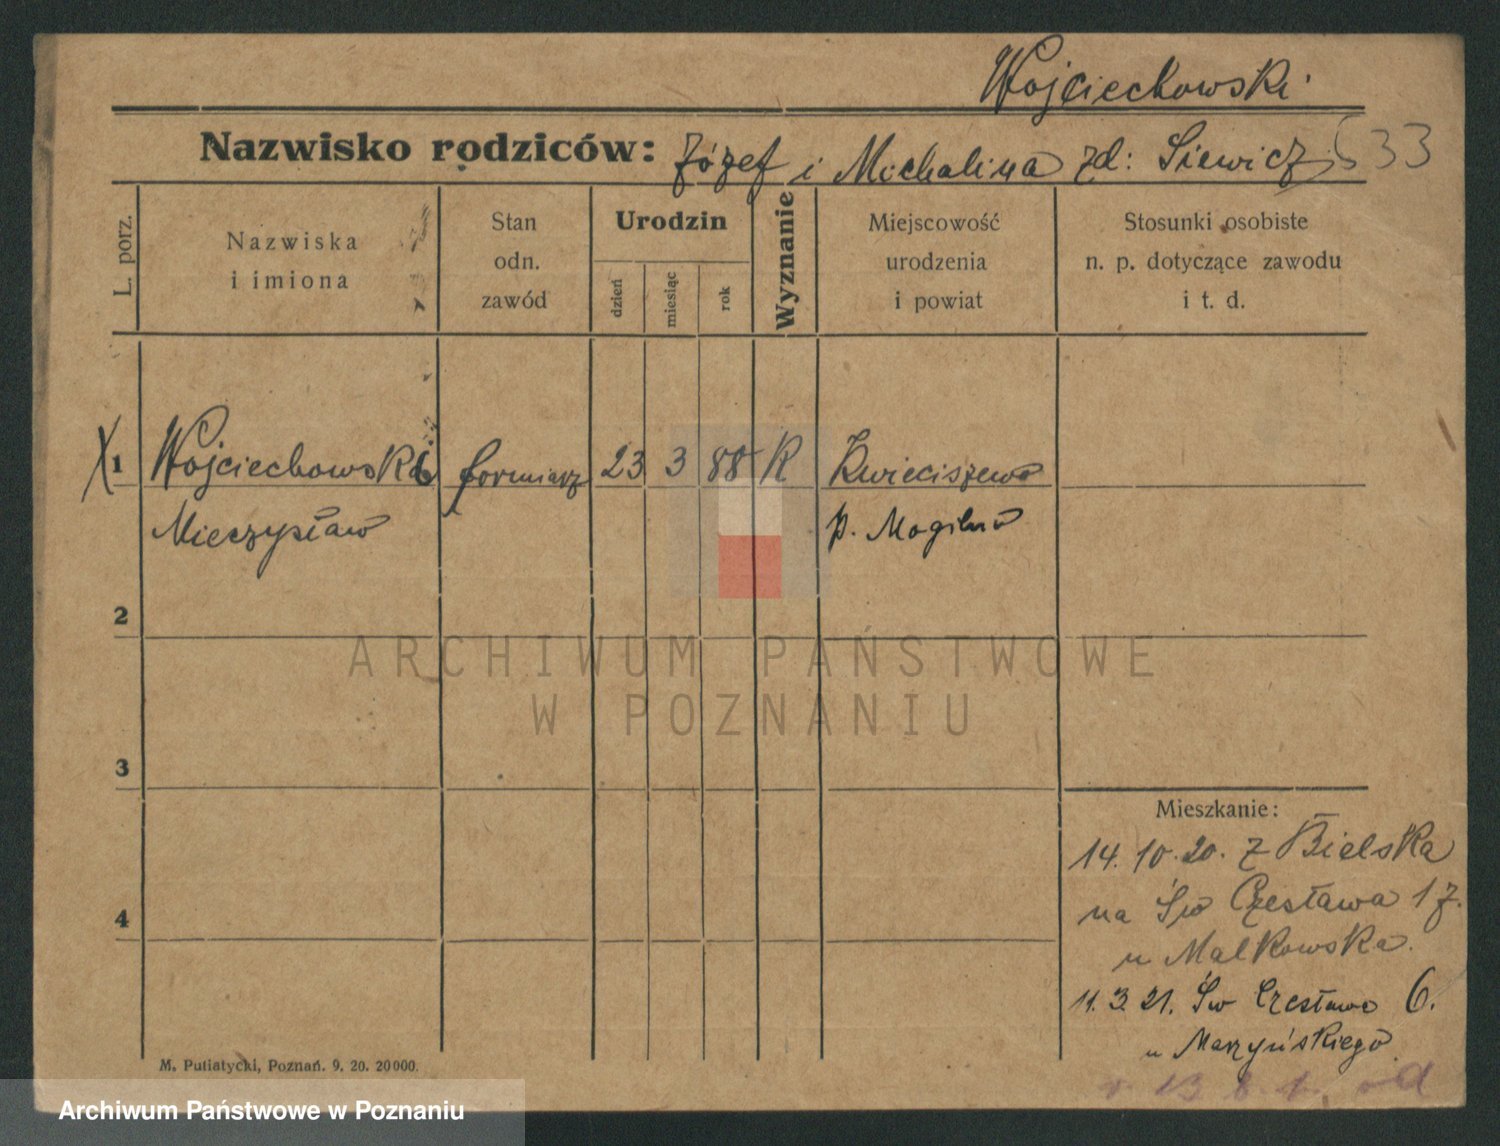 Wojciechowski
Nazwisko rodziców: Józef i Michalina zd: Siewicz 533
L. porz.
Nazwiska
i imiona
Stan
odn.
zawód
Urodzin
dzień
miesiąc
rok
Wyznanie
Miejscowość
urodzenia
i powiat
Stosunki osobiste
n. p. dotyczące zawodu
i t. d.
1 Wojciechowski formiarz 23 3 88 R Kwieciszewo
Mieczysław p. Mogilno
2
ARCHIWUM PAŃSTWOWE
W POZNANIU
3
Mieszkanie:
14. 10. 20. z Bielska
na Św Czesława 17.
u Malkowska.
4
11. 3. 21. Św Czesława 6.
u Maszyńskiego
M. Putiatycki, Poznań. 9. 20. 20000.
Archiwum Państwowe w Poznaniu